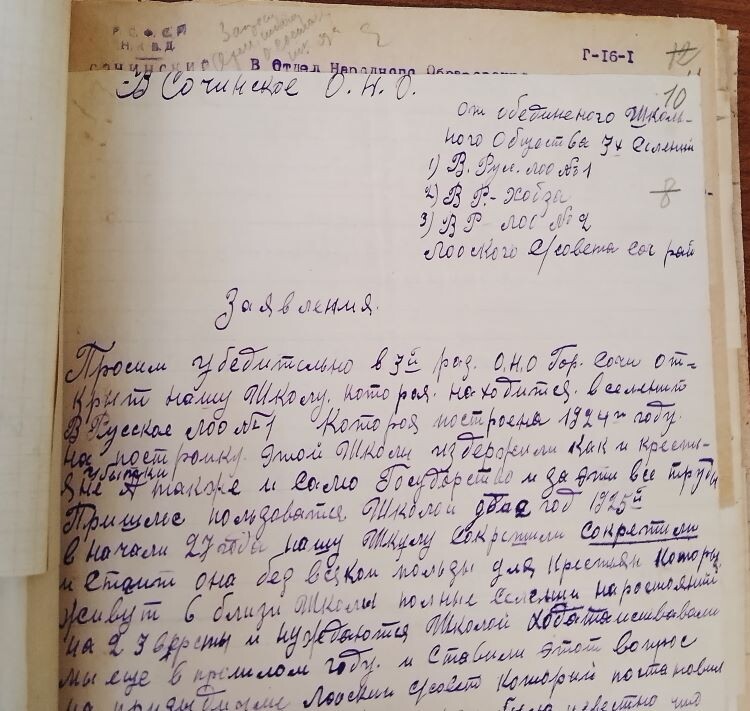 Р. С. Ф. С. Р.
Н. К. В. Д.
В Отдел Народного Образов
Г-16-I
12
10
В Сочинское О. Н. О.
От обединеного Школь-
ного Общества 3х Селений
1) В. Рус. Лоо №1
2) В Р.- Хобза
8
3) В Р- Лоо №2
Лооского С/совета соч рай
Заявления.
Просим убедительно в 3й раз. О.Н.О Гор. Сочи от-
крыт нашу Школу. которая. находится. в селении
В Русское Лоо №1 Которая построена 1924м году.
на постройку этой Школы издержили как и кресть-
убытки
яне А также и само Государство и за эти все труды
Пришлос пользоватся Школой два год 1925й
в начали 27 года нашу Шкулу сокретили сокретили
и стаит она без всякой пользы для крестьян которы
живут в близи Школы полные селении на ростоянии
на 2 3 версты и нуждаются Школой ходатаиствавали
мы еще в прошлом году. и ставили этот вопрос
на Лооский с/совет который постановил